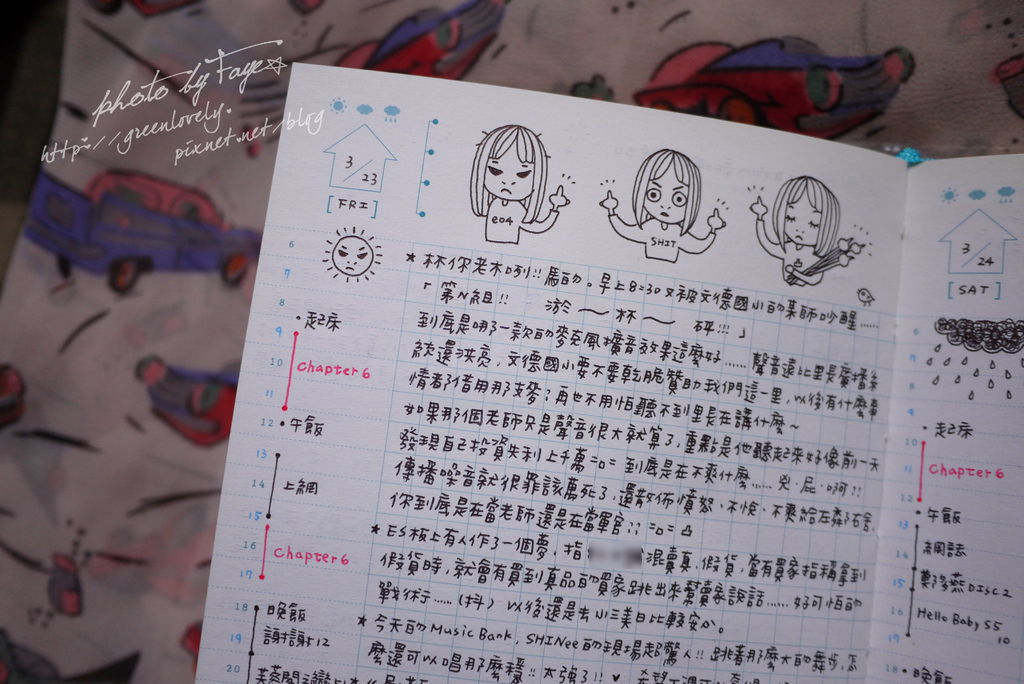 photo by Faye
http://greenlovely.
pixnet.net/blog
3/23
[FRI]
e04
SHIT
6
7
8
9
10
11
12
13
14
15
16
17
18
19
20
• 起床
Chapter 6
• 午飯
上網
Chapter 6
• 晚飯
謝謝12
★ 林你老木咧!! 馬的。早上8:30又被文德國小的某師吵醒……
「第N組!! 於～杯～砰!!!」
到底是哪了一款的麥克風擴音效果這麼好……聲音遠比里長廣播系
統還洪亮,文德國小要不要乾脆贊助我們這一里,以後有什麼事
情者借用那支麥?再也不用怕聽不到里長在講什麼~
如果那個老師只是聲音很大就算了,重點是他聽起來好像前一天
發現自己投資失利上千萬=o= 到底是在不爽什麼……兇.屁.啊!!
傳播噪音就很罪該萬死了,還散佈憤怒、不悅、不爽給左鄰右舍
你到底是在當老師還是在當軍官?? =o= 凸
★ ES板上有人作了一個夢,指 混賣真、假貨,當有買家指稱拿到
假貨時,就會有買到真品的買家跳出來幫賣家說話……好可怕的
戰術行……(抖) 以後還是去小三美日比較安か。
★ 今天的Music Bank, SHINee的現場超驚人!! 跳著那麼大的舞步,怎
麼還可以唱那麼穩!! 太強了!! ♥
3/24
[SAT]
6
7
8
9
10
11
12
13
14
15
16
17
18
• 起床
Chapter 6
• 午飯
網誌
DISC 2
Hello Baby S5
10
• 晚飯